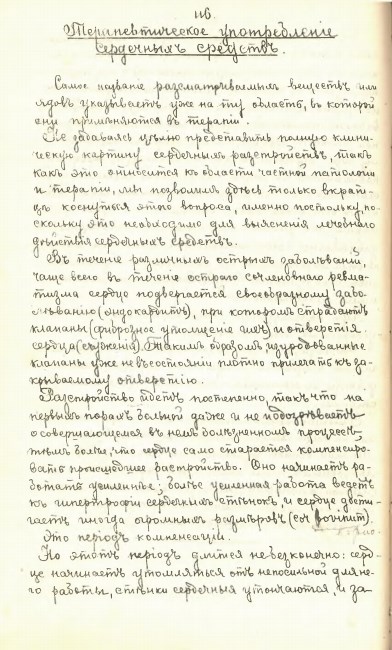 116.
Терапевтическое употребленіе
сердечныхъ средствъ.
Самое названіе разсматриваемыхъ веществъ или
ядовъ указываетъ уже на ту область, въ которой
они примѣняются въ терапіи.
Не задаваясь цѣлью представить полную клини-
ческую картину сердечныхъ разстройствъ, такъ
какъ это относится къ области частной патологіи
и терапіи, мы позволимъ здѣсь только вкрат-
цѣ коснуться этого вопроса, именно постольку, по-
скольку это необходимо для выясненія лечебнаго
дѣйствія сердечныхъ средствъ.
Въ теченіе различныхъ острыхъ заболѣваній,
чаще всего въ теченіе остраго сочленовнаго ревма-
тизма сердце подвергается своеобразному забо-
лѣванію (эндокардитъ), при которомъ страдаютъ
клапаны (фиброзное утолщеніе ихъ) и отверстія
сердца (съуженія). Такимъ образомъ изуродованные
клапаны уже не въ состояніи плотно прилегать къ за-
крываемому отверстію.
Разстройство идетъ постепенно, такъ что на
первыхъ порахъ больной даже и не подозрѣваетъ
о совершающемся въ немъ болѣзненномъ процессѣ,
тѣмъ болѣе, что сердце само старается компенсиро-
вать происшедшее растройство. Оно начинаетъ ра-
ботать усиленнѣе; болѣе усиленная работа ведетъ
къ гипертрофіи сердечныхъ стѣнокъ, и сердце дости-
гаетъ иногда огромныхъ размѣровъ (cor bovinum).
Это періодъ компенсаціи.
Но этотъ періодъ длится не безконечно: серд-
це начинаетъ утомляться отъ непосильной для не-
го работы, стѣнки сердечныя утончаются, и за-